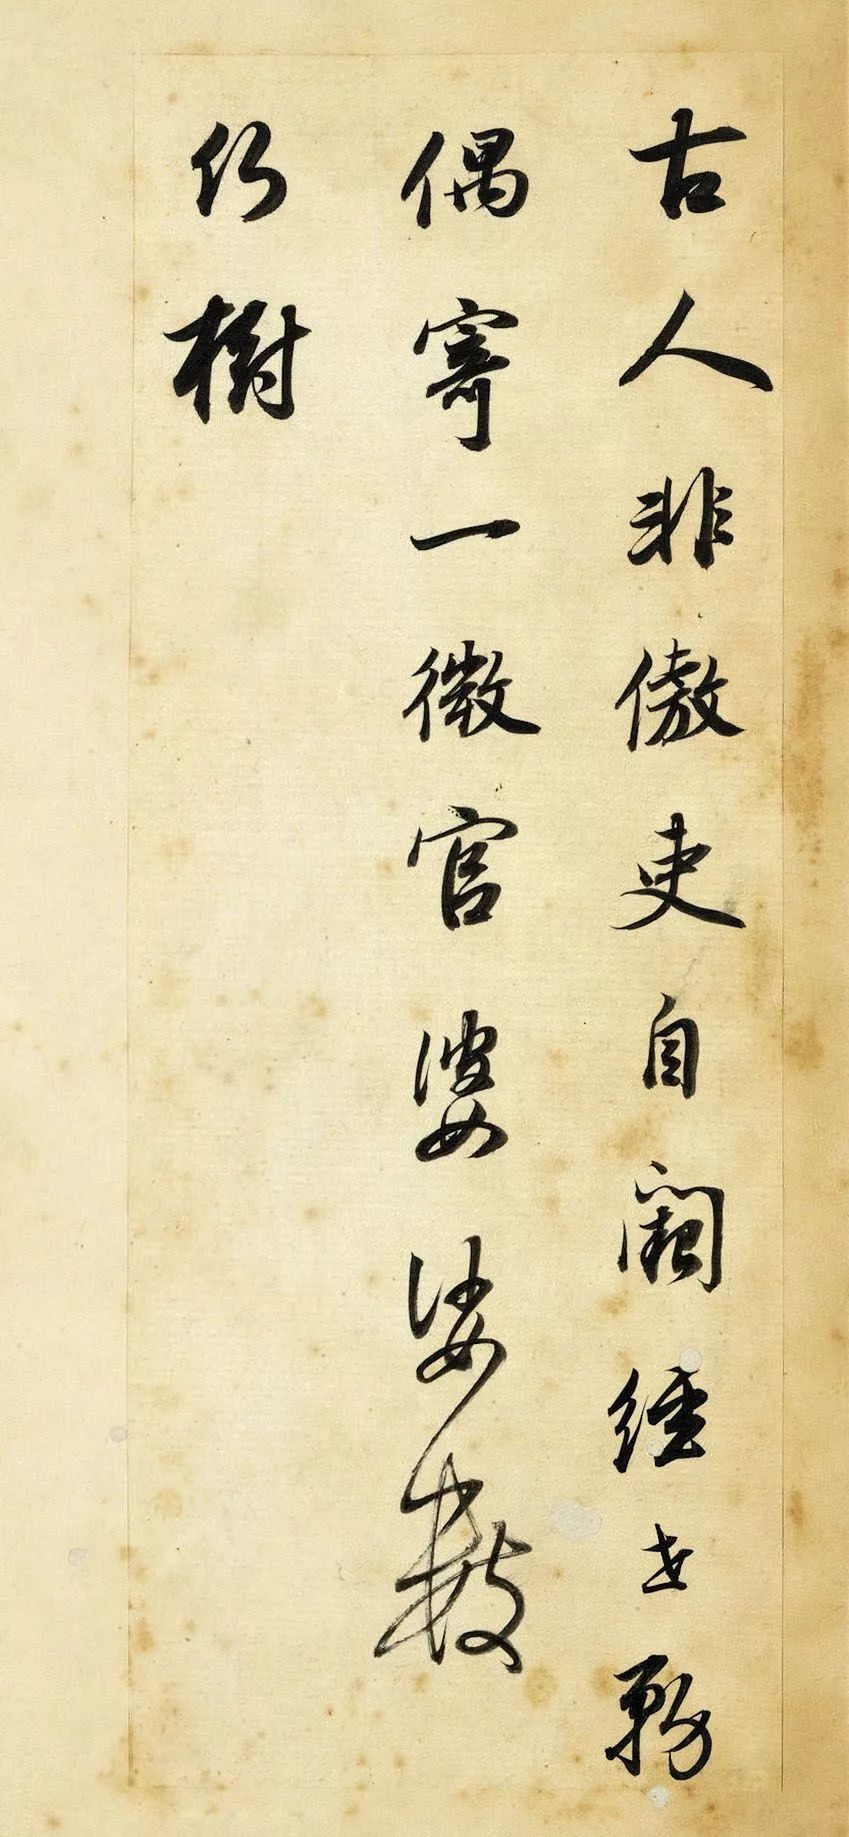 古人非傲吏自闕經世務
偶寄一微官婆娑數
行樹